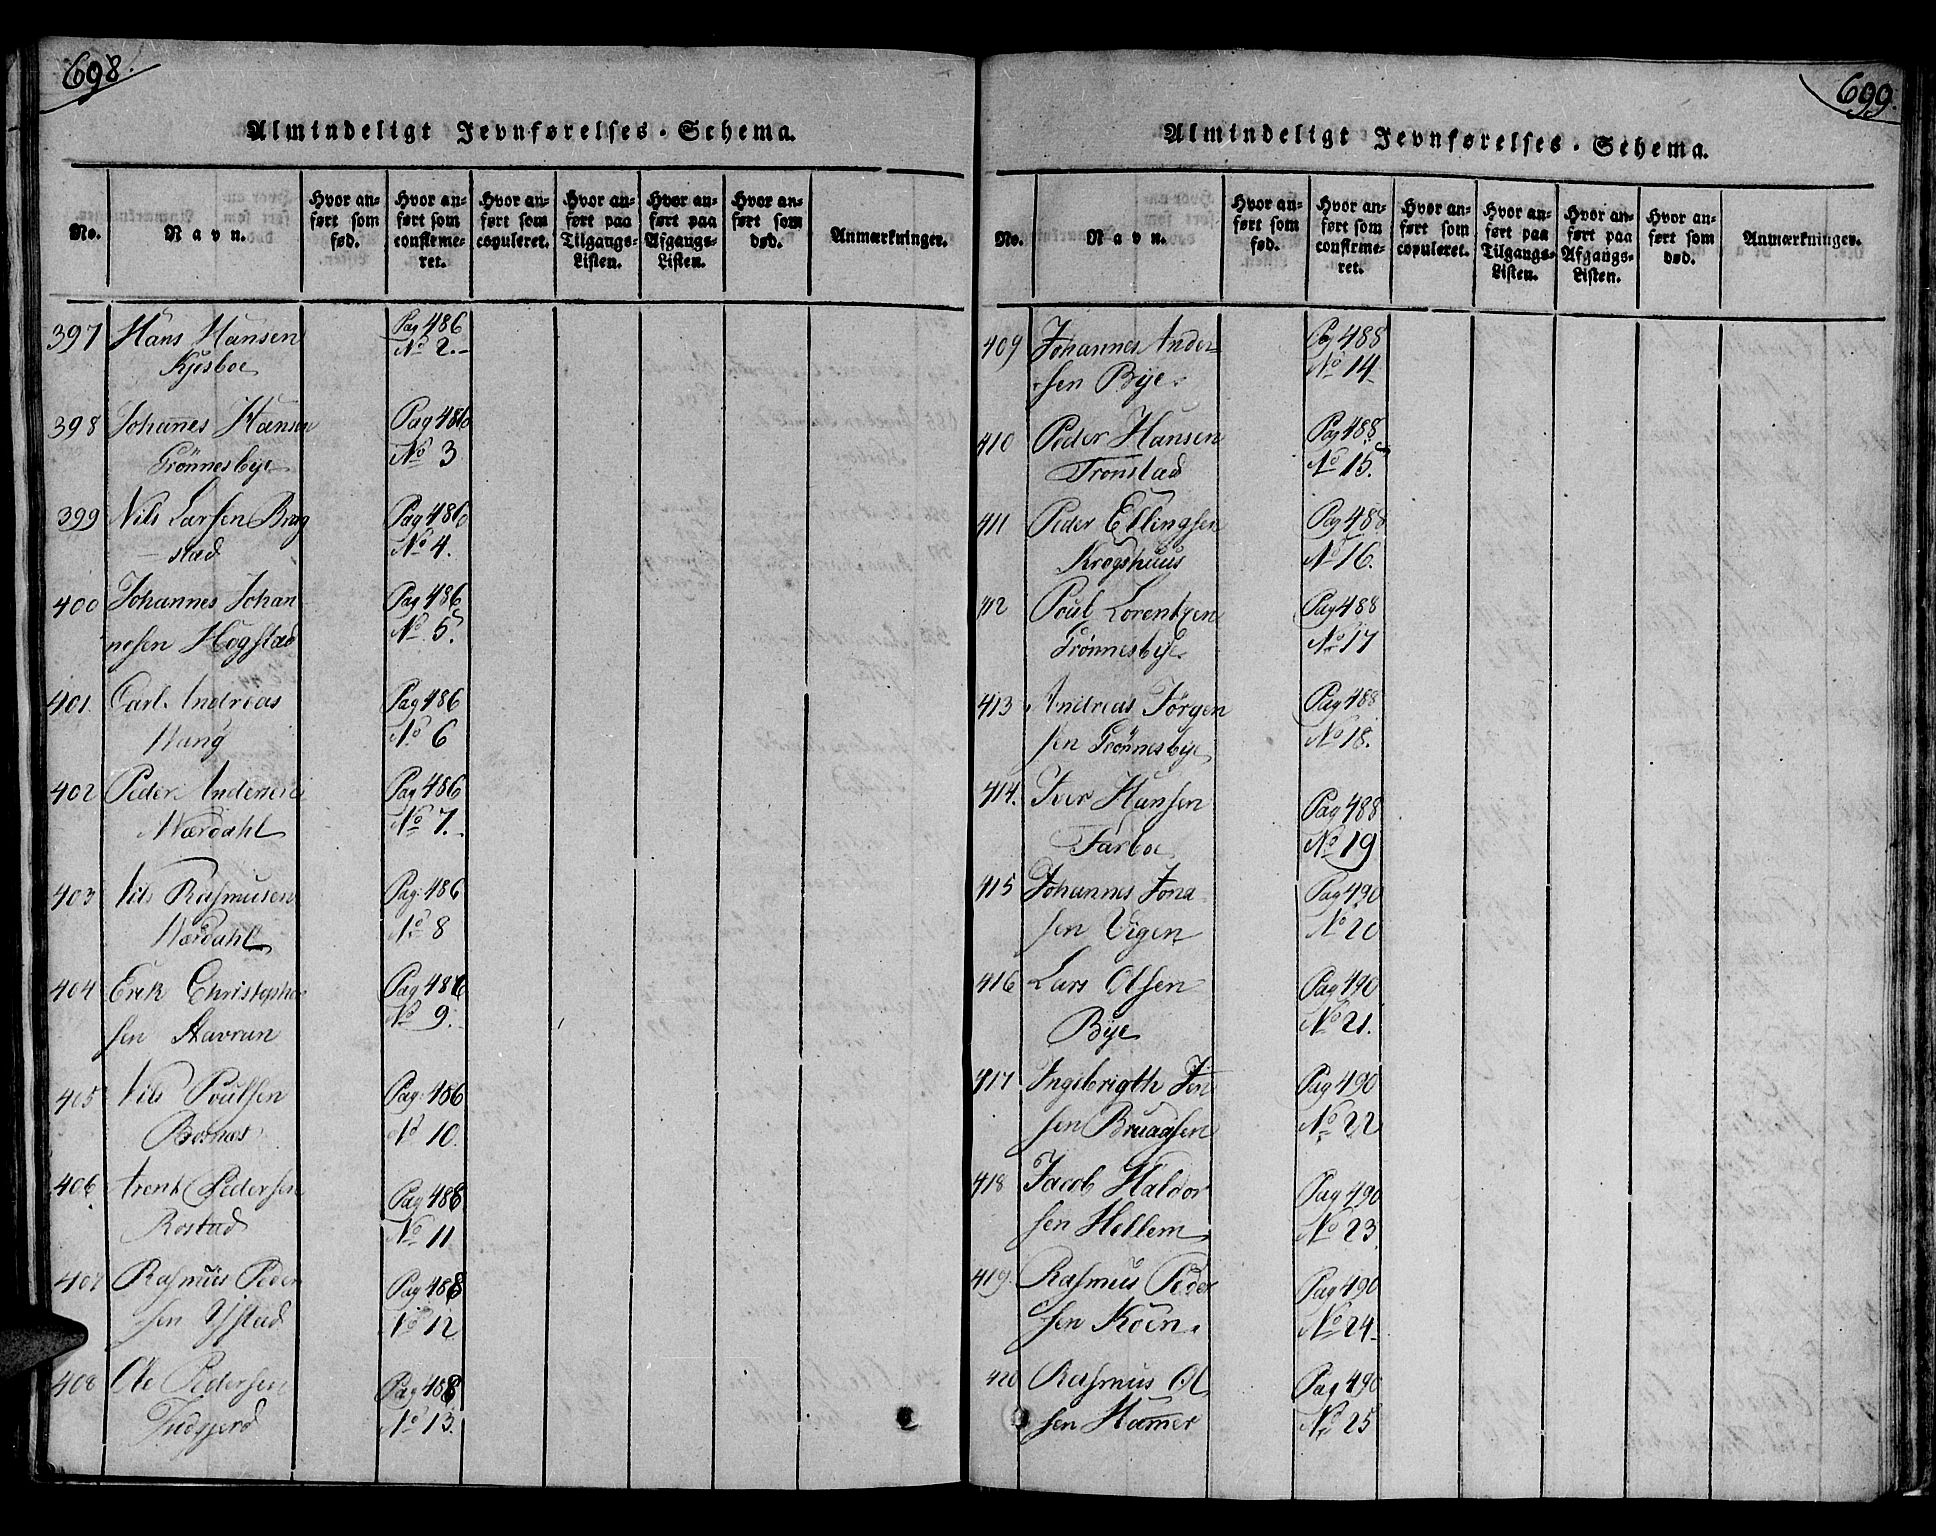 698.
Almindeligt Jevnførelses-Schema.
No.
Navn.
Hvor anført som fød.
Hvor anført som confirmeret.
Hvor anført som copuleret.
Hvor anført paa Tilgangs-Listen.
Hvor anført paa Afgangs-Listen.
Hvor anført som død.
Anmærkninger.
397 Hans Hansen Pag 486
Kjesboe No 2.
398 Johannes Hansen Pag 486
Grönnesbye No 3
399 Nils Larsen Brug Pag 486
stad No 4.
400 Johannes Johan Pag 486
nesen Hogstad No 5.
401. Carl Andreas Pag 486
Wang No 6
402 Peder Andersen Pag 486
Nærdahl No 7.
403 Nils Rasmusen Pag. 486
Værdahl No 8
404 Erik Christopher Pag 486
sen Stavran No 9.
405 Nils Poulsen Pag. 486
No 10.
406 Arent Pedersen Pag 488
Rostad No 11
407 Rasmus Peder Pag 488
sen Ystad No 12
408 Ole Pedersen Pag 488
Indgjerd No 13.
699.
Almindeligt Jevnførelses-Schema.
No.
Navn.
Hvor anført som fød.
Hvor anført som confirmeret.
Hvor anført som copuleret.
Hvor anført paa Tilgangs-Listen.
Hvor anført paa Afgangs-Listen.
Hvor anført som død.
Anmærkninger.
409 Johannes Ander Pag 488
sen Bye No 14
410 Peder Hansen Pag 488
Tronstad No 15.
411 Peder Ellingsen Pag 488
Krogshuus No 16.
412 Poul Lorentzen Pag 488
Grönnesbye No 17
413 Andreas Jörgen Pag 488
sen Grönnesbye No 18.
414. Iver Hansen Pag 488
Farboe No 19
415 Johannes Jona Pag 490
sen Vigen No 20
416 Lars Olsen Pag 490
Bye No 21.
417 Ingebrigth Jon Pag 490
sen Bruaasen No 22
418 Jacob Haldor Pag 490
sen Hellem No 23
419. Rasmus Peder Pag 490
sen Köen No 24
420 Rasmus Ol Pag 490
sen Hammer No 25